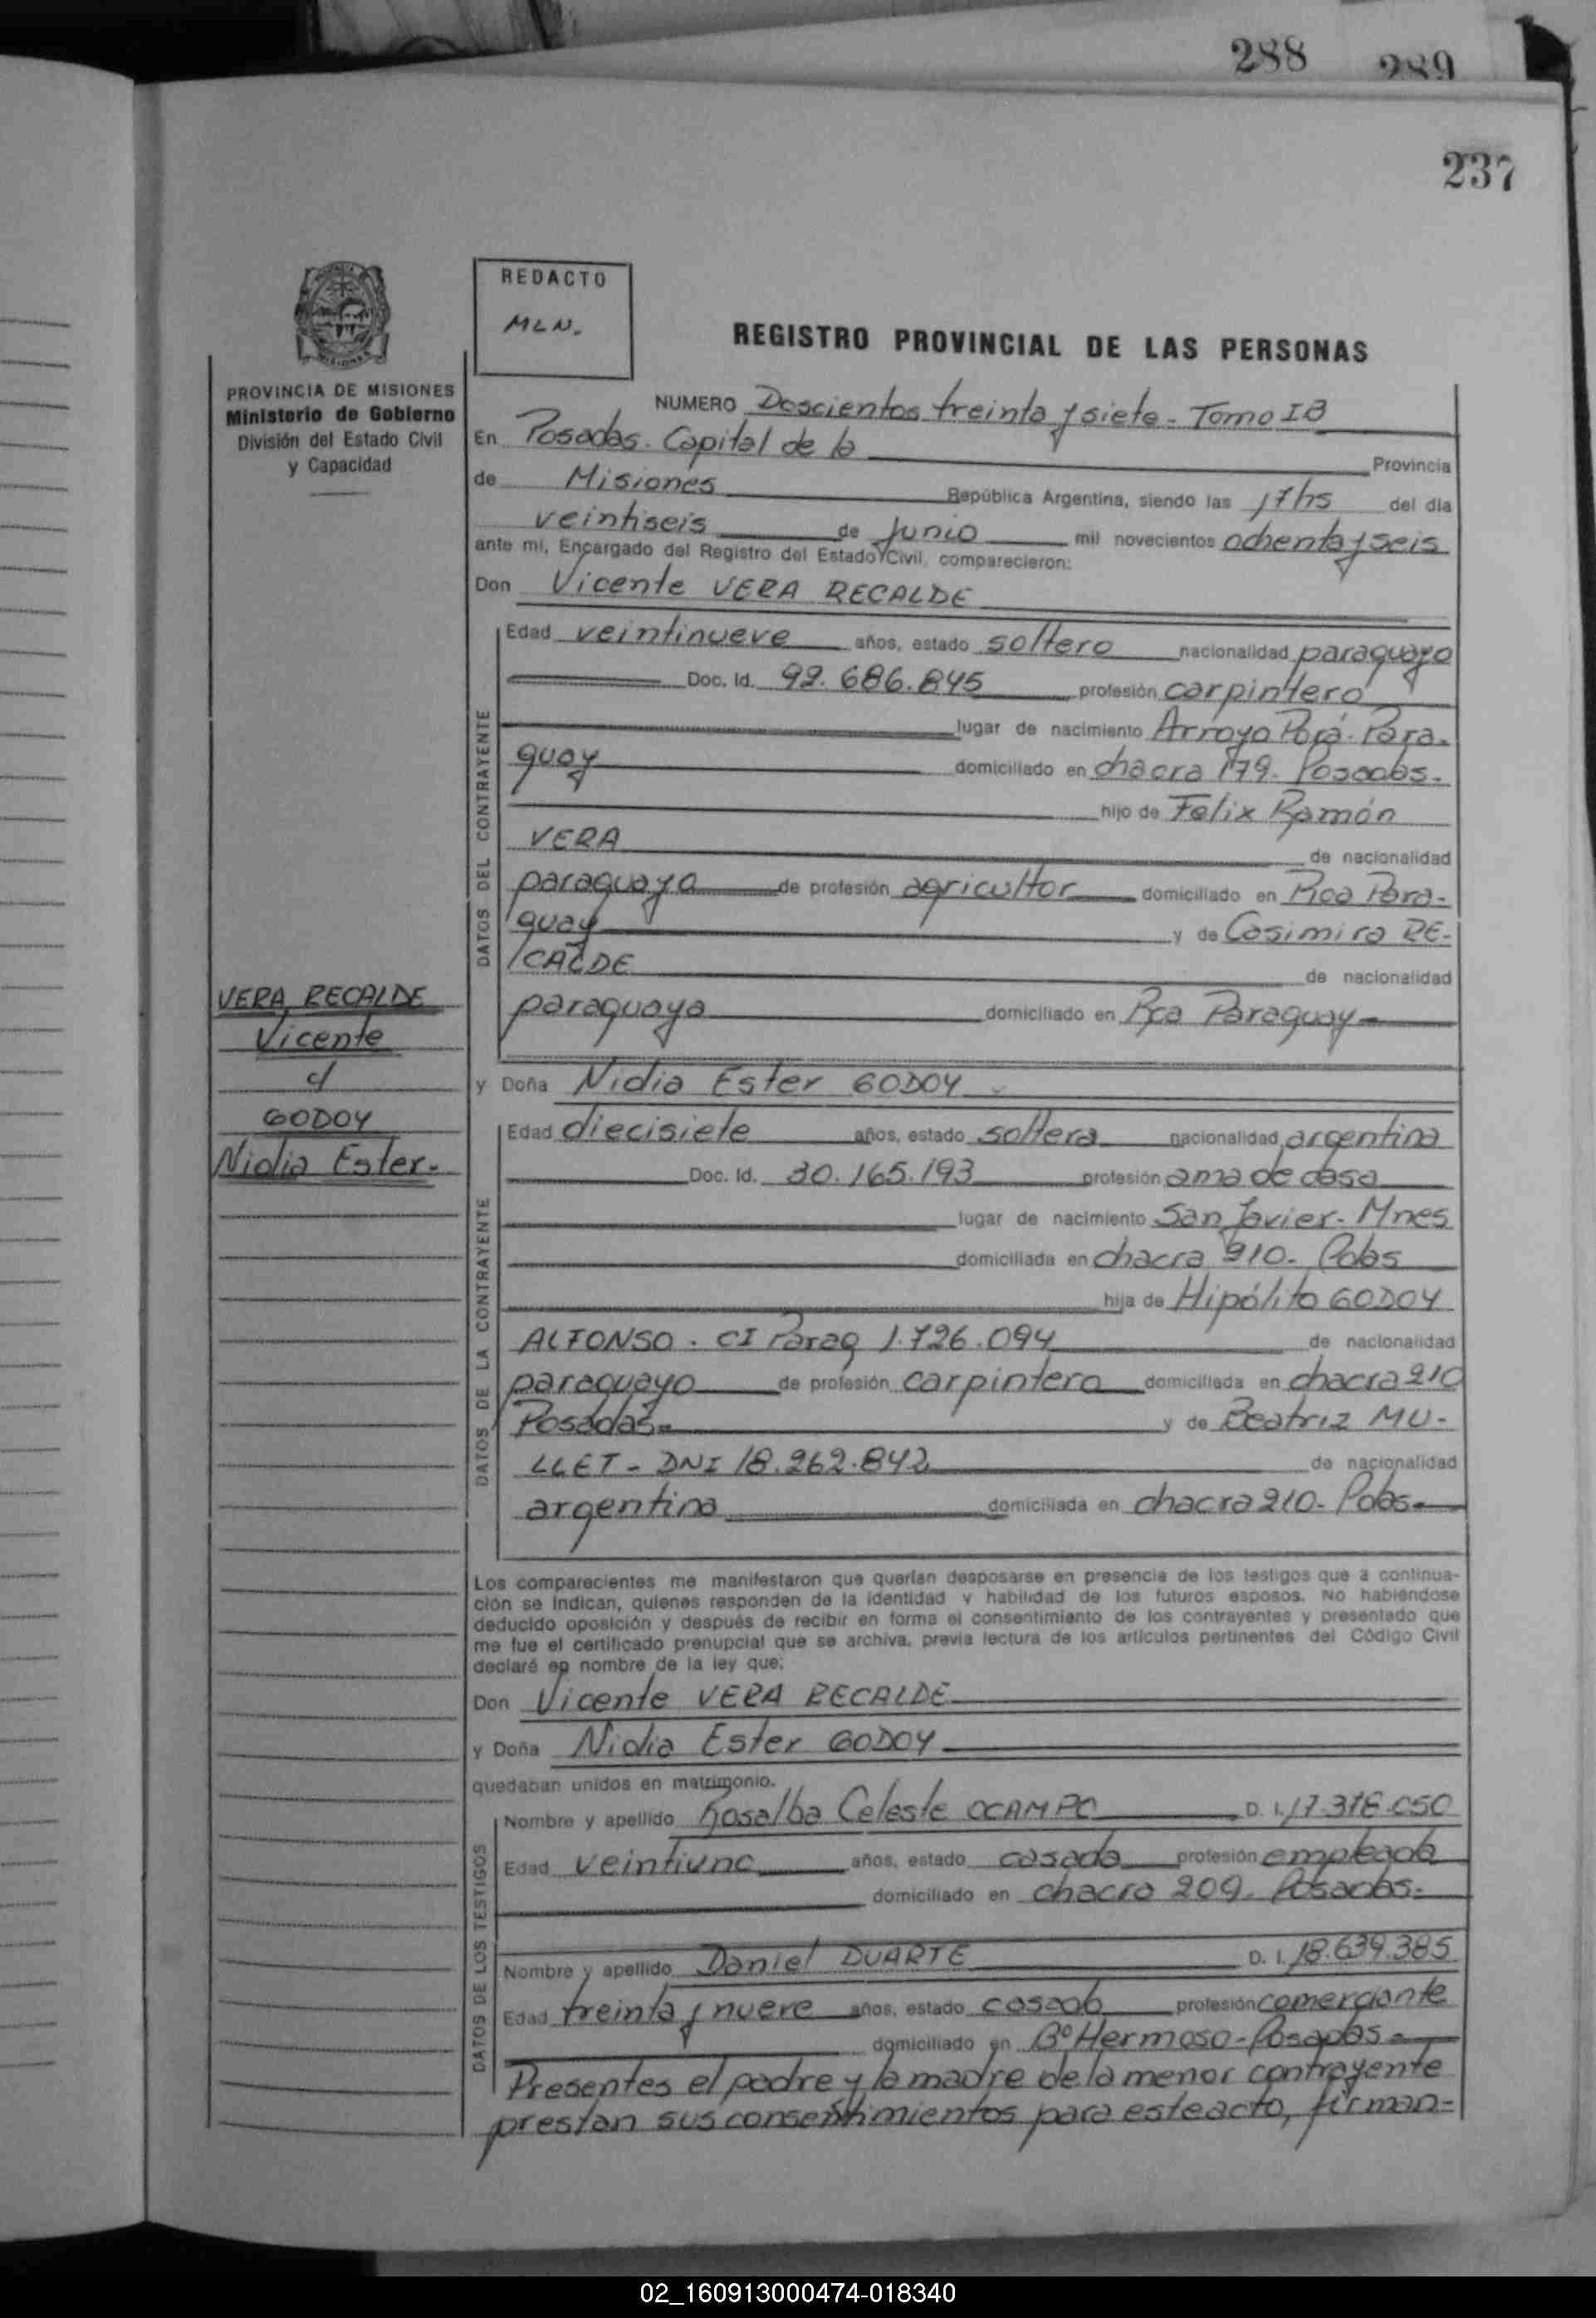 288 289
237
REDACTO
MLN.
REGISTRO PROVINCIAL DE LAS PERSONAS
PROVINCIA DE MISIONES
Ministerio de Gobierno
División del Estado Civil
y Capacidad
NUMERO Doscientos treinta y siete - Tomo IB
En Posadas. Capital de la Provincia
de Misiones República Argentina, siendo las 17hs del dia
veintiseis de junio mil novecientos ochenta y seis
ante mi, Encargado del Registro del Estado Civil, comparecieron:
Don Vicente VERA RECALDE
DATOS DEL CONTRAYENTE
Edad veintinueve años, estado soltero nacionalidad paraguayo
Doc. Id. 92.686.845 profesión carpintero
lugar de nacimiento Arroyo Porá. Para-
guay domiciliado en chacra 179. Posadas.
hijo de Felix Ramón
VERA de nacionalidad
paraguaya de profesión agricultor domiciliado en Rca Para-
guay y de Casimira RE-
CALDE de nacionalidad
paraguaya domiciliado en Rca Paraguay
VERA RECALDE
Vicente
c/
GODOY
Nidia Ester.
y Doña Nidia Ester GODOY
DATOS DE LA CONTRAYENTE
Edad diecisiete años, estado soltera nacionalidad argentina
Doc. Id. 30.165.193 profesión ama de casa
lugar de nacimiento San Javier - Mnes
domiciliada en chacra 210. Pdas
hija de Hipólito GODOY
ALFONSO . CI Parag 1.726.094 de nacionalidad
paraguayo de profesión carpintero domiciliada en chacra 210
Posadas y de Beatriz MU-
LLET - DNI 18.262.842 de nacionalidad
argentina domiciliada en chacra 210. Pdas.
Los comparecientes me manifestaron que querían desposarse en presencia de los testigos que a continua-
ción se indican, quienes responden de la identidad y habilidad de los futuros esposos. No habiéndose
deducido oposición y después de recibir en forma el consentimiento de los contrayentes y presentado que
me fue el certificado prenupcial que se archiva, previa lectura de los artículos pertinentes del Código Civil
declaré en nombre de la ley que:
Don Vicente VERA RECALDE
y Doña Nidia Ester GODOY
quedaban unidos en matrimonio.
DATOS DE LOS TESTIGOS
Nombre y apellido Rosalba Celeste OCAMPO D. I. 17.376.050
Edad veintiuno años, estado casada profesión empleada
domiciliado en chacra 209. Posadas.
Nombre y apellido Daniel DUARTE D. I. 18.639.385
Edad treinta y nueve años, estado casado profesión comerciante
domiciliado en Bº Hermoso - Posadas
Presentes el padre y la madre de la menor contrayente
prestan sus consentimientos para este acto, firman-
02_160913000474-018340